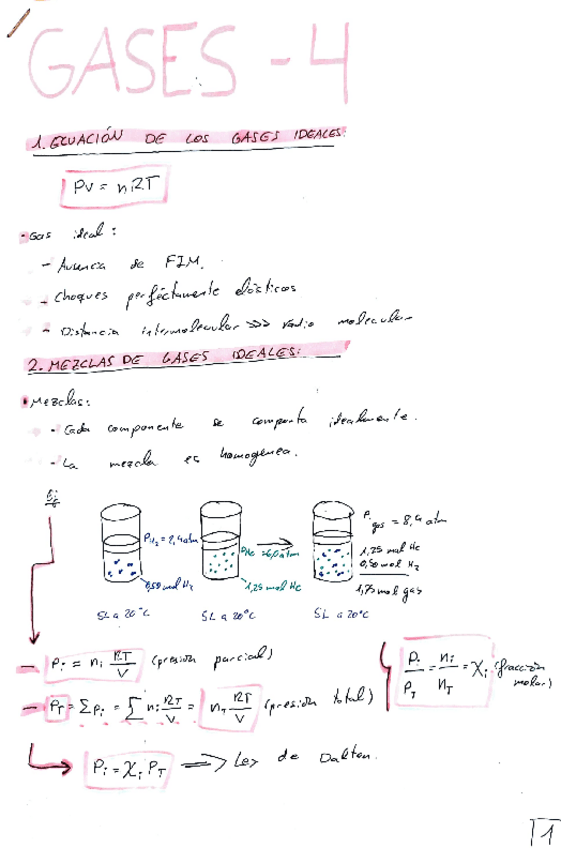 GASES - 4
1. ECUACIÓN DE LOS GASES IDEALES:
PV = nRT
- Gas ideal:
- Ausencia de FIM.
- Choques perfectamente elásticos
- Distancia intermolecular >>> radio molecular
2. MEZCLAS DE GASES IDEALES:
• Mezclas:
- Cada componente se comporta idealmente.
- La mezcla es homogénea.
Ej
P_H₂ = 2,4 atm
0,50 mol H₂
5L a 20°C
P_He = 6,0 atm
1,25 mol He
5L a 20°C
P_gas = 8,4 atm
1,25 mol He
0,50 mol H₂
1,75 mol gas
5L a 20°C
- Pᵢ = nᵢ RT/V (presión parcial)
Pᵢ/P_T = nᵢ/n_T = χᵢ (fracción molar)
- P_T = ΣPᵢ = Σ nᵢ RT/V = n_T RT/V (presión total)
Pᵢ = χᵢ P_T ⇒ Ley de Dalton.
1